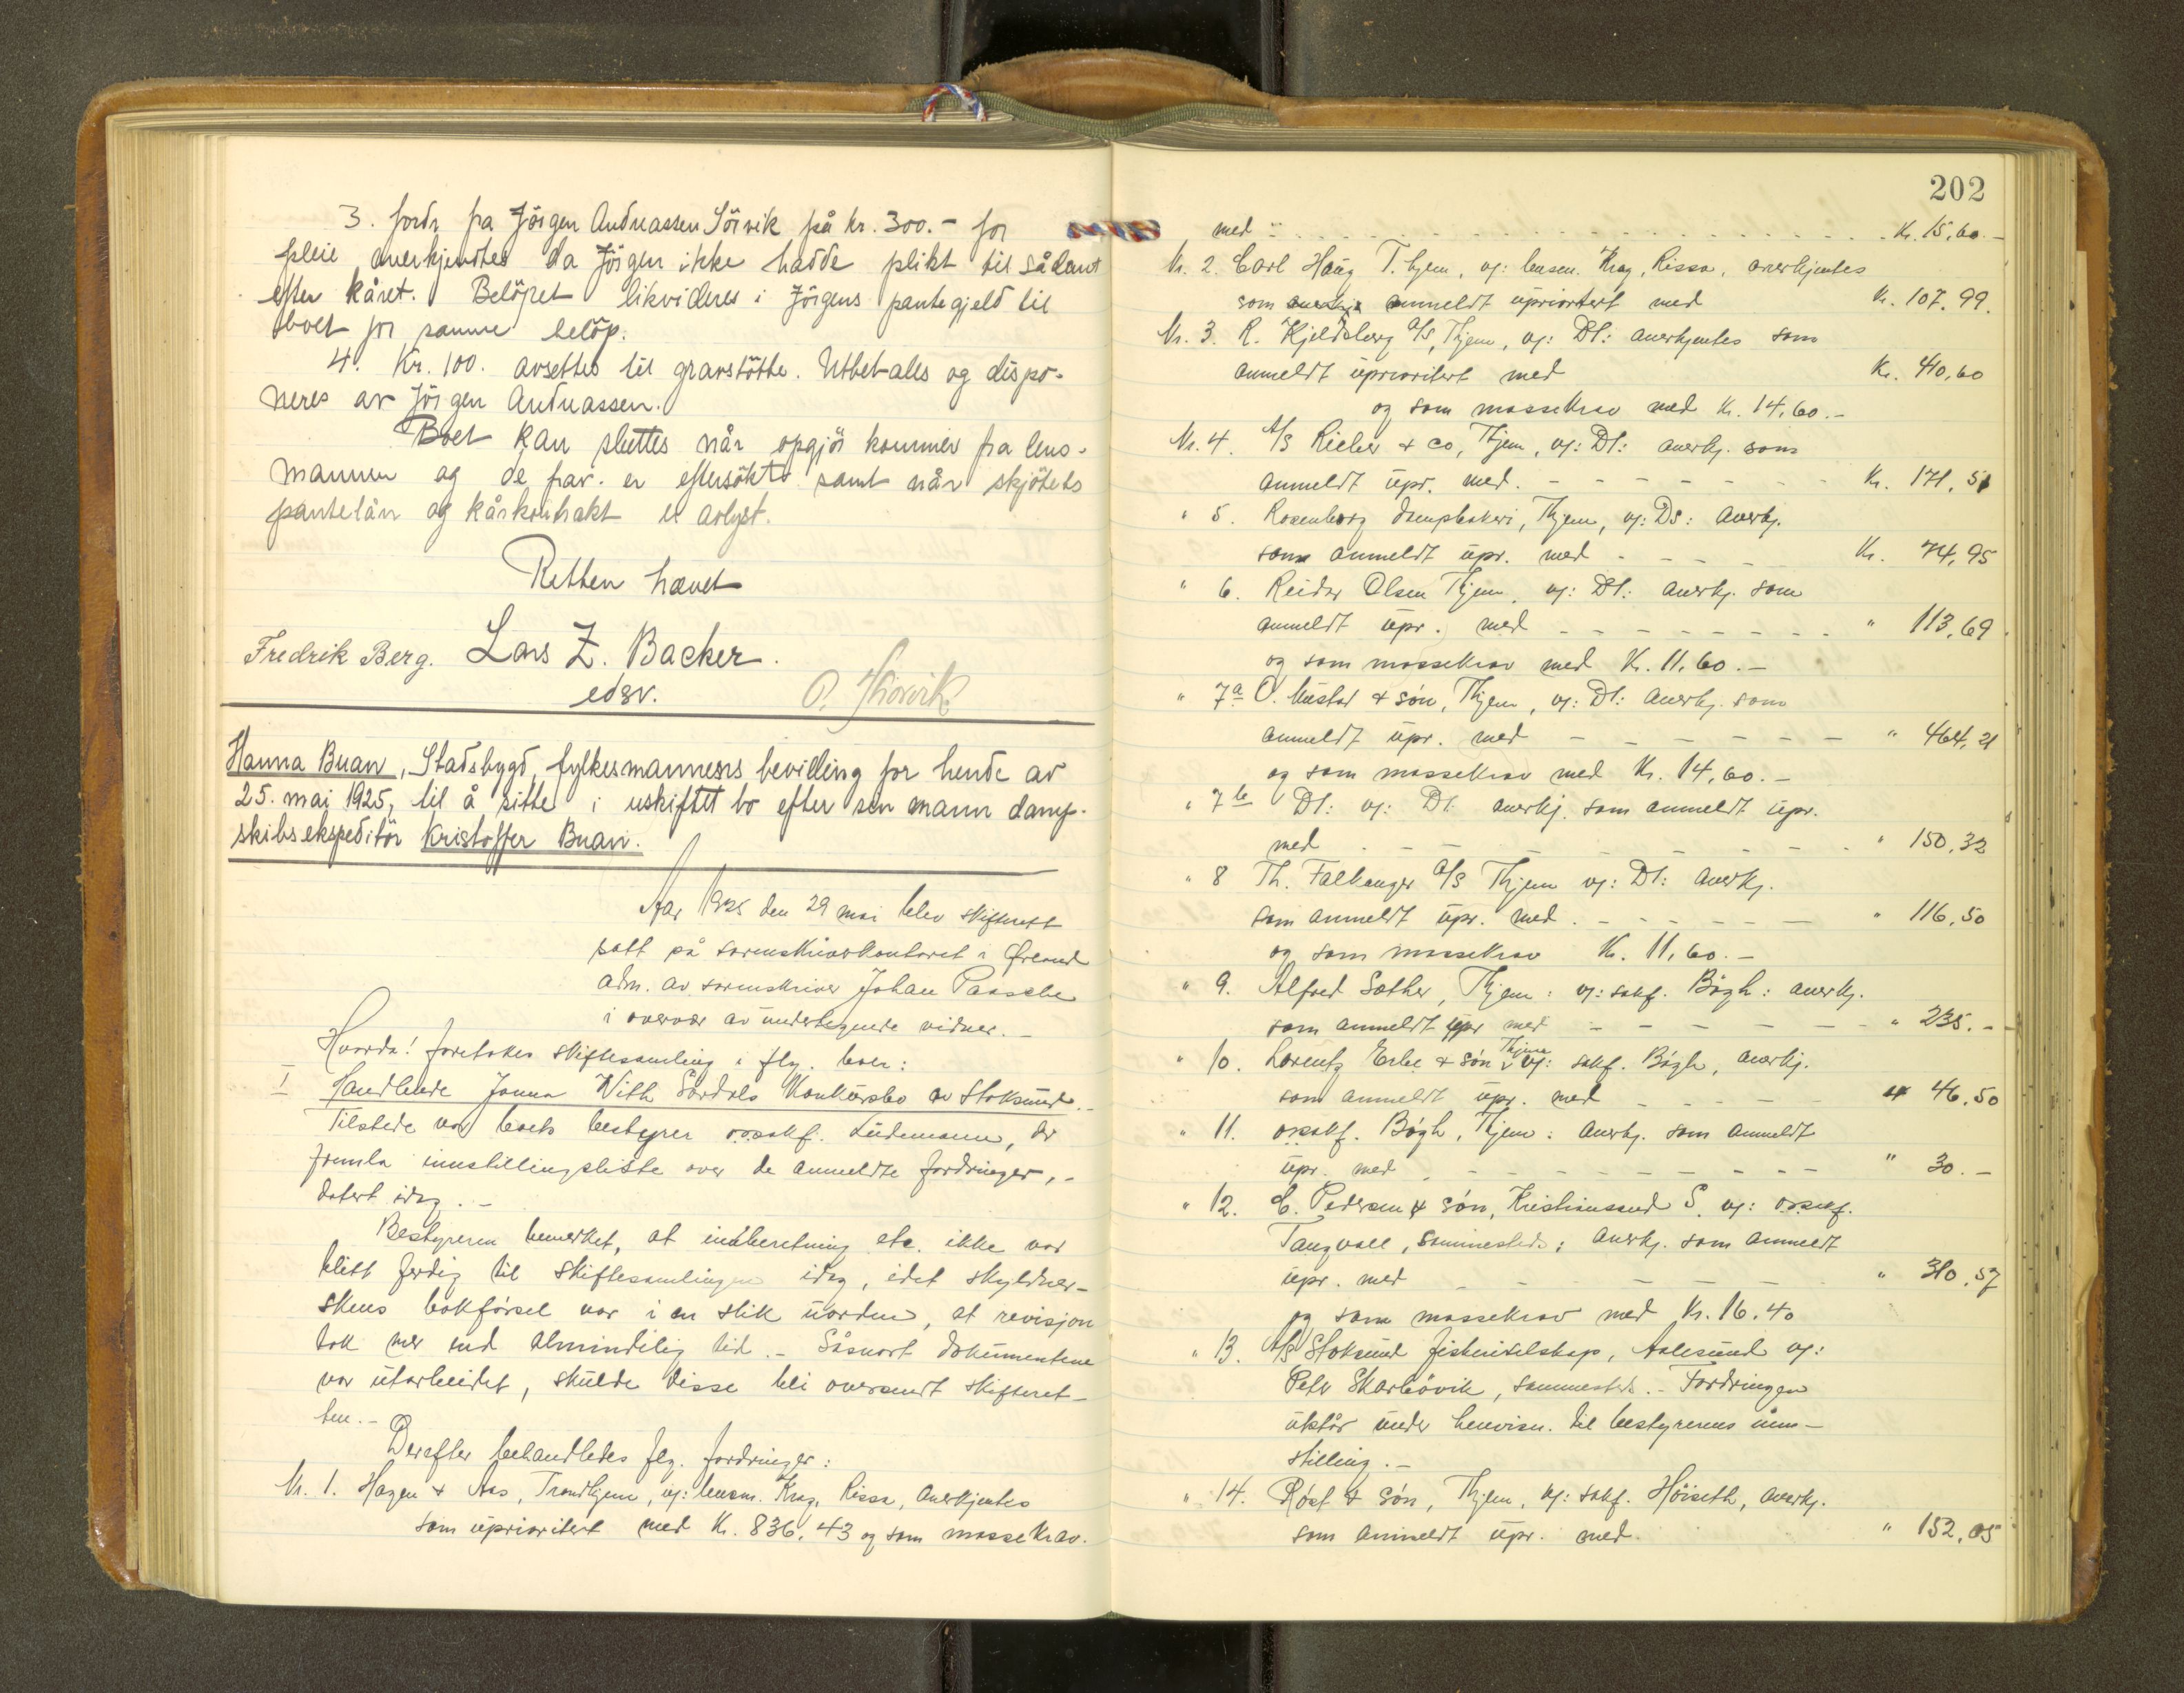 3. fordr fra Jörgen Andreassen Sörvik på kr. 300.- for
pleie anerkjendtes da Jörgen ikke hadde plikt til sådant
efter kåret. Belöpet likvideres i Jörgens pantegjeld til
boet for samme belöp.
4. Kr. 100. avsettes til gravstötte. Utbetales og dispo-
neres av Jörgen Andreassen.
Boet kan sluttes når opgjör kommer fra lens-
mannen og de frav. er eftersökt samt når skjötets
pantelån og kårkontrakt er avlyst.
Retten hævet
Fredrik Berg. Lars Z. Backer.
edsv.
Hanna Buan, Stadsbygd, fylkesmannens bevilling for hende av
25. mai 1925, til å sitte i uskiftet bo efter sin mann damp-
skibsekspeditör Kristoffer Buan.
Aar 1925 den 29 mai blev skifterett
satt på sorenskriverkontoret i Ørland
adm. av sorenskriver Johan Paasche
i overvær av undertegnede vidner.-
Hvorda! foretokes skiftesamling i flg. boer:
I Handlende Jonna With Sørdals Konkursbo av Stoksund.-
Tilstede var boets bestyrer orsakf. Lüdemann, der
fremla innstillingsliste over de anmeldte fordringer,-
datert idag.-
Bestyreren bemerket, at indberetning etc. ikke var
blitt ferdig til skiftesamlingen idag, idet skyldner-
skens bokförsel var i en slik uorden, at revisjon
tok mer end almindelig tid.- Såsnart dokumentene
var utarbeidet, skulde disse bli oversendt skifteret-
ten.-
Derefter behandledes flg. fordringer:
Nr. 1. Hagen & Aas, Trondhjem, v/: lensm. Krag, Rissa, anerkjentes
som uprioritert med Kr. 836,43 og som massekrav.
202
med - - - Kr. 15,60.-
Nr. 2. Carl Haug T.hjem, v/: lensm. Krag, Rissa, anerkjentes
som anmeldt uprioritert med Kr. 107.99.
Nr. 3. R. Kjeldsberg A/S, Thjem, v/: Dt: anerkjentes som
anmeldt uprioritert med Kr. 410,60
og som massekrav med Kr. 14,60.-
Nr. 4. A/S Rieber & co, Thjem, v/: Dt: anerkj. som
anmeldt upr. med. - - - Kr. 171,51
" 5. Rosenborg dampbakeri, Thjem, v/: Ds: anerkj.
som anmeldt upr. med - - - Kr. 74,95
" 6. Reidar Olsen Thjem, v/: Dt: anerkj. som
anmeldt upr. med - - - " 113,69
og som massekrav med Kr. 11,60.-
" 7a O. Mustad & søn, Thjem, v/: Dt: anerkj. som
anmeldt upr. med - - - " 464,21
og som massekrav med Kr. 14,60.-
" 7b Dt: v/: Dt. anerkj. som anmeldt upr.
med - - - " 150,32
" 8 Th. Falkanger A/S Thjem v/: Dt: anerkj.
som anmeldt upr. med. - - - " 116,50
og som massekrav Kr. 11,60.-
" 9. Alfred Sæther, Thjem: v/: sakf. Bögh: anerkj.
som anmeldt upr med - - - " 235.-
" 10. Lorentz Erbe & søn Thjem v/: sakf. Bögh, anerkj.
som anmeldt upr. med - - - " 46,50
" 11. orsakf. Bögh, Thjem: anerkj. som anmeldt
upr. med - - - " 30.-
" 12. C. Pedersen & søn, Kristiansund S. v/: orsakf.
Tangvall, sammesteds: anerkj. som anmeldt
upr. med - - - " 310,57
og som massekrav med Kr. 16.40
" 13. A/S Stoksund fiskeriselskap, Aalesund v/:
Petr Skarbövik, sammesteds.- Fordringen
utstår under henvisn. til bestyrerens inn-
stilling.-
" 14. Røst & Søn, Thjem, v/: sakf. Höiseth, anerkj.
som anmeldt upr. med. " 152,05